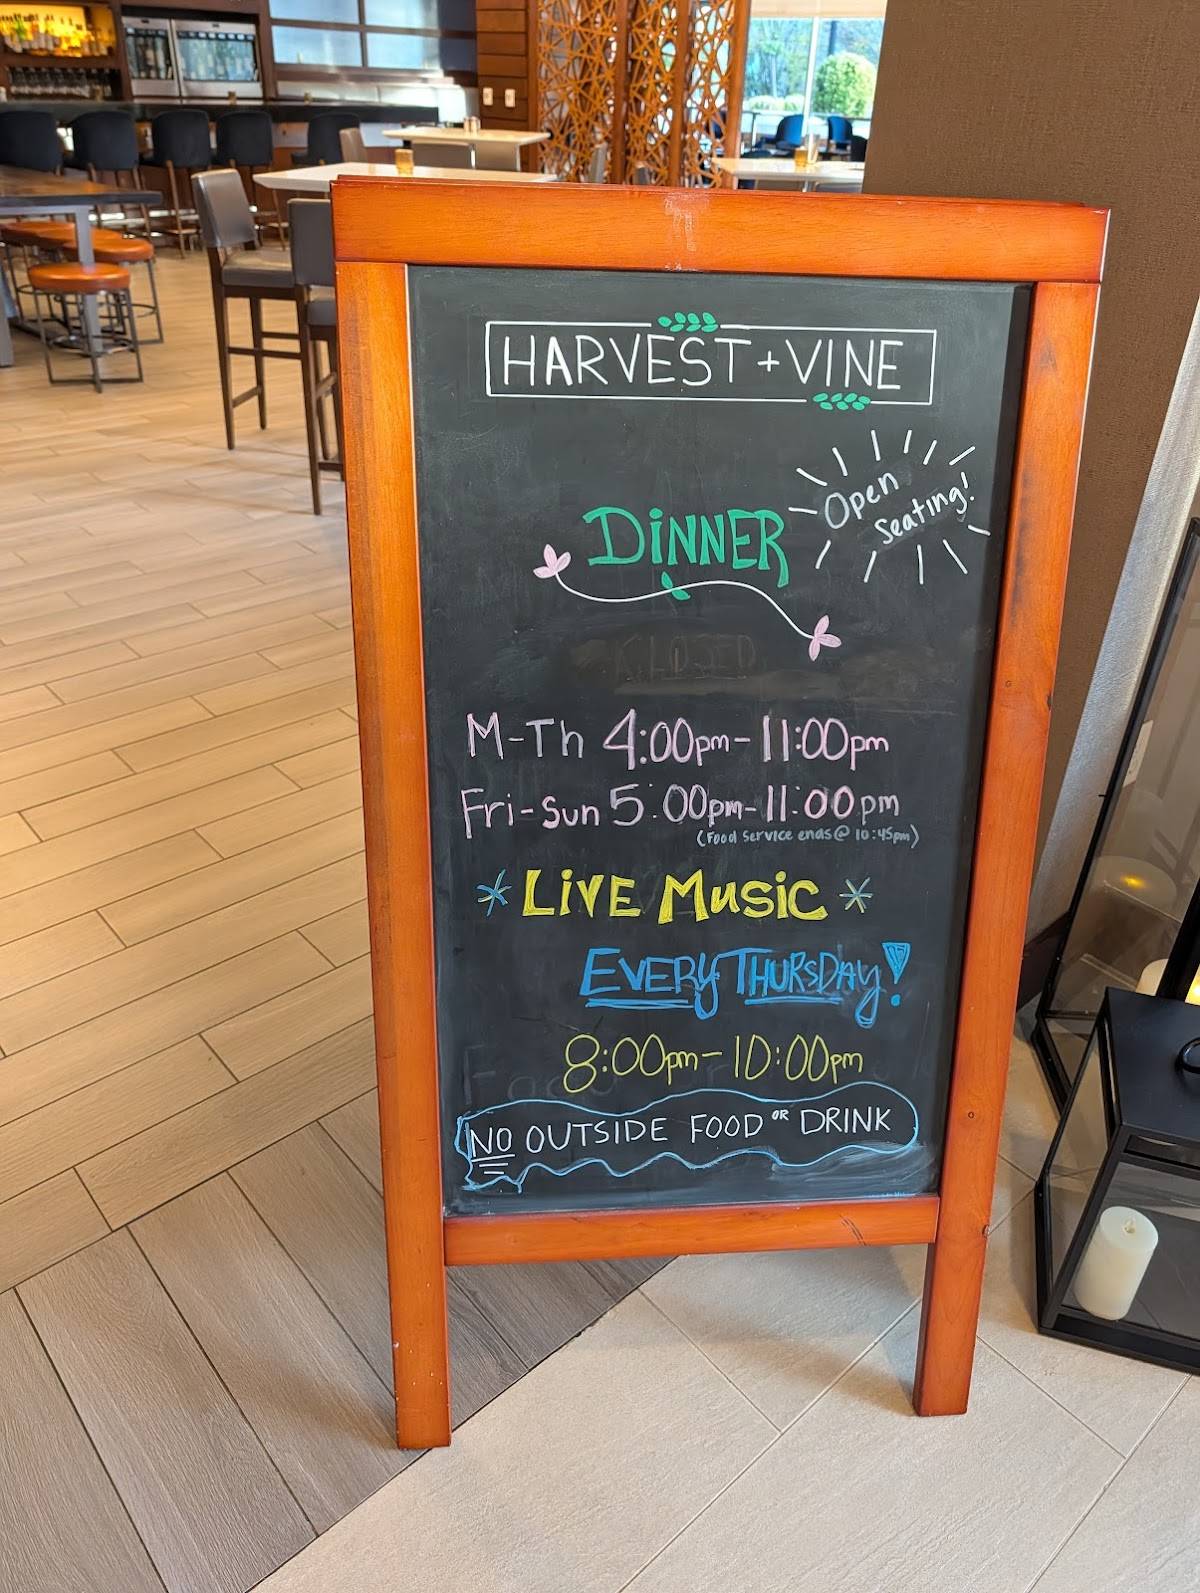 HARVEST + VINE
Open
Seating!
DINNER
CLOSED
M-Th 4:00pm-11:00pm
Fri-Sun 5:00pm-11:00pm
(Food Service ends @ 10:45pm)
* LIVE MUSIC *
EVERY THURSDAY!
8:00pm-10:00pm
NO OUTSIDE FOOD OR DRINK